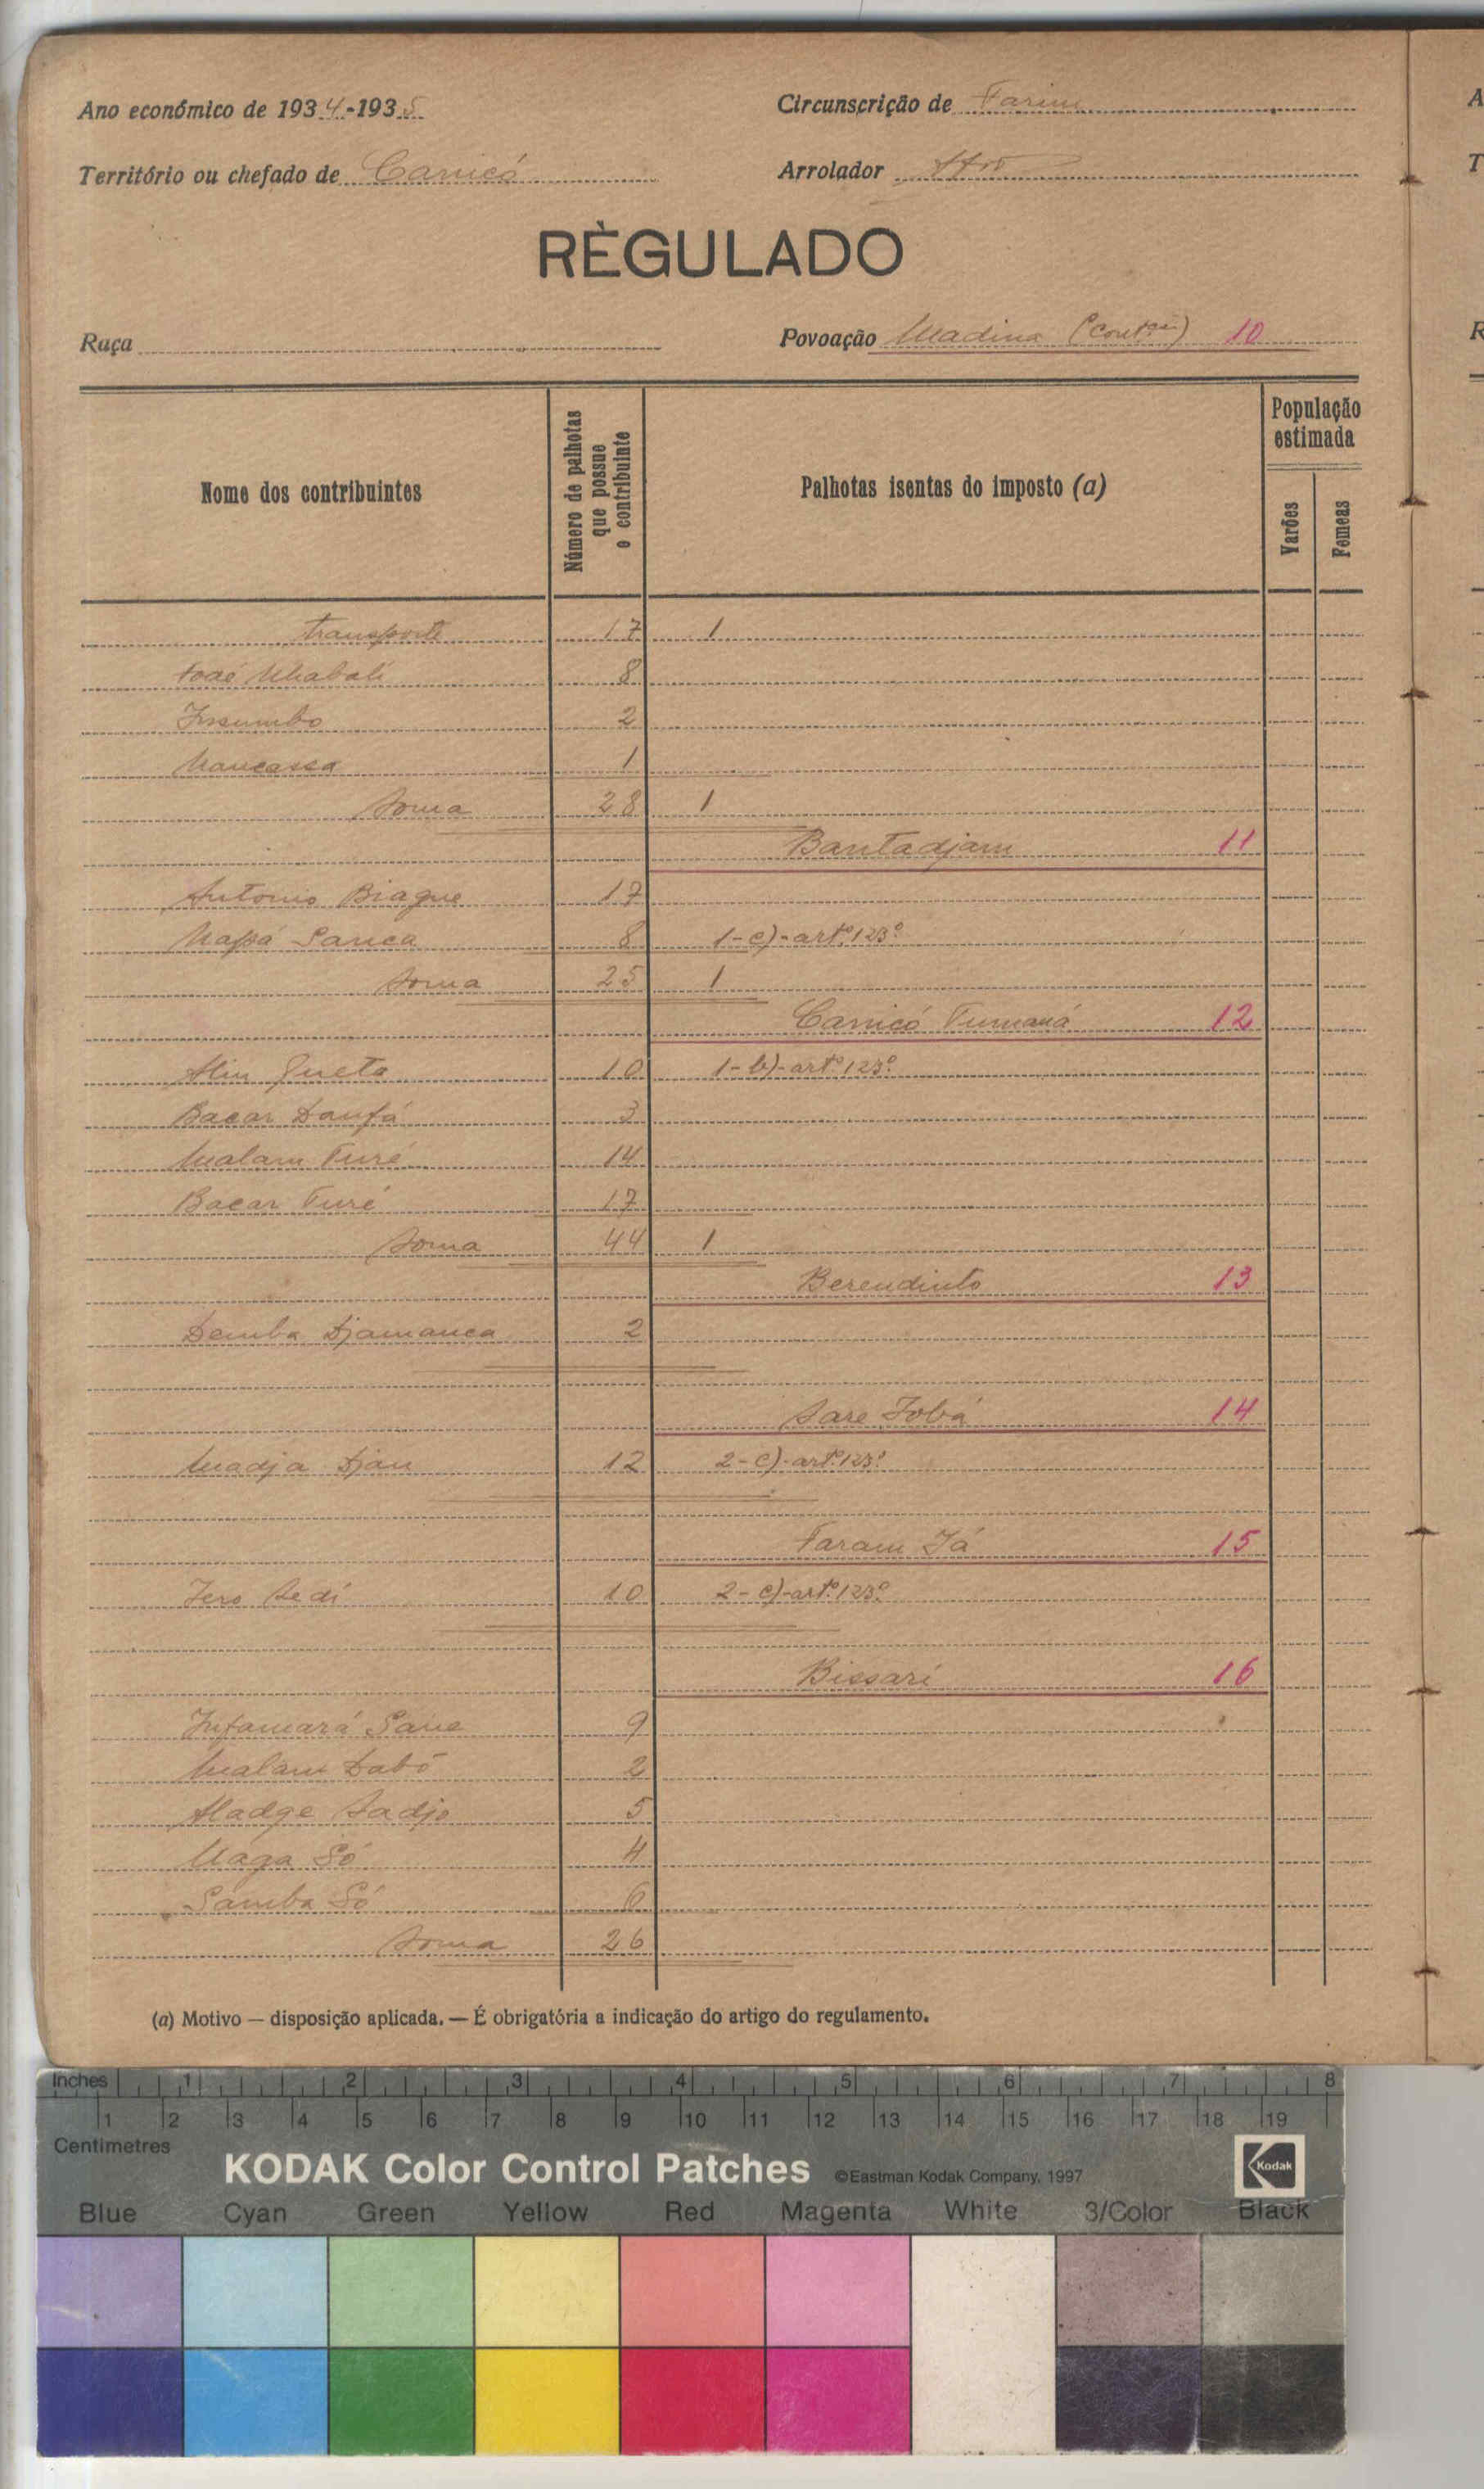 Ano económico de 1934-1935
Circunscrição de Farim
Território ou chefado de Canicó
Arrolador
RÈGULADO
Raça
Povoação Madina (contão) 10
Nome dos contribuintes
Número de palhotas que possue o contribuinte
Palhotas isentas do imposto (a)
População estimada
Varões
Femeas
Transporte 17 1
Mabali 8
2
Mancassa 1
Soma 28 1
Bantadjam 11
Antonio Biague 17
Sanca 8 1-c)-artº. 123º
Soma 25 1
Canicó Tumaná 12
Alin Queta 10 1-b)-artº. 123º
Bacar Danfá 3
Malam Turé 14
Bacar Turé 17
Soma 44 1
Berendinto 13
Demba Djamanca 2
Sare Jobá 14
Madja Djau 12 2-c)-artº. 123º
Faram Já 15
Jero Sedi 10 2-c)-artº. 123º
Bissari 16
Infamará Sane 9
Malam Dabó 2
Aladge Sadjo 5
Maga Só 4
Samba Só 6
Soma 26
(a) Motivo — disposição aplicada. — É obrigatória a indicação do artigo do regulamento.
Inches 1 2 3 4 5 6 7 8
1 2 3 4 5 6 7 8 9 10 11 12 13 14 15 16 17 18 19
Centimetres
KODAK Color Control Patches ©Eastman Kodak Company, 1997 Kodak
Blue Cyan Green Yellow Red Magenta White 3/Color Black